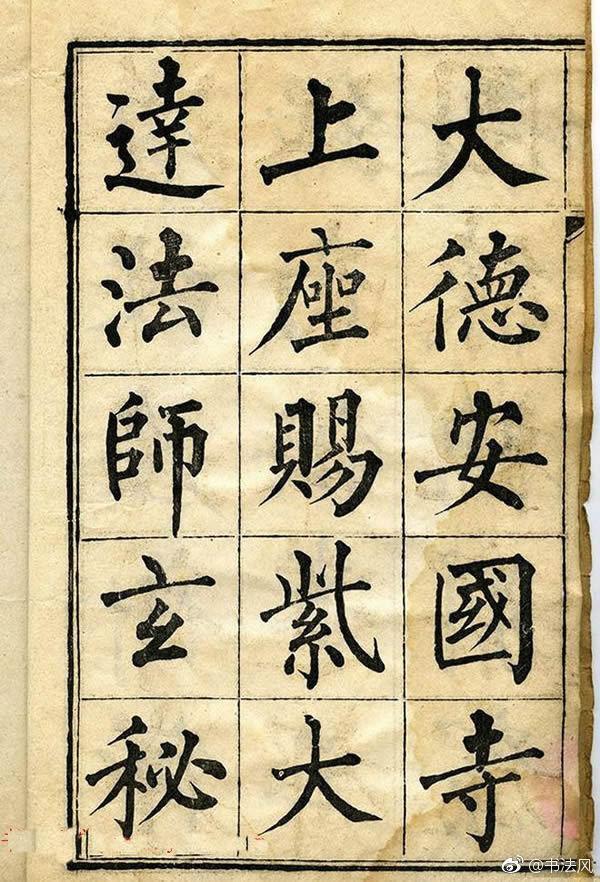 大德安國寺
上座賜紫大
達法師玄秘
@书法风